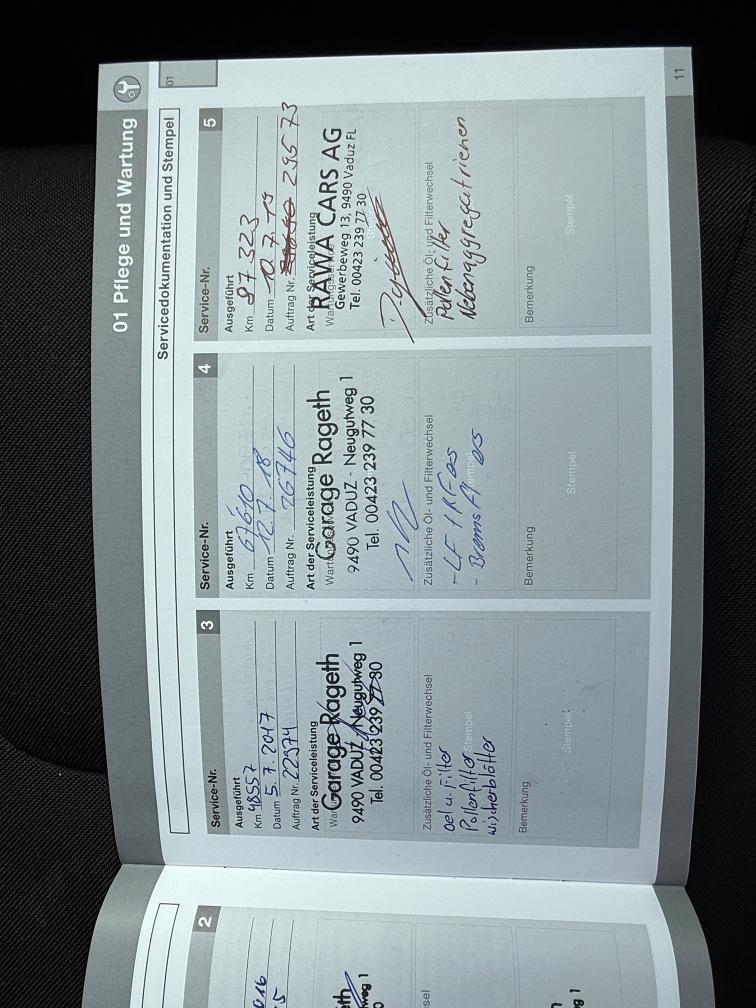 01 Pflege und Wartung
01
Servicedokumentation und Stempel
2
016
5
weg 1
sel
g 1
Service-Nr.
3
Ausgeführt
Km 48557
Datum 5.7.2017
Auftrag Nr. 22974
Art der Serviceleistung
Garage Rageth
9490 VADUZ - Neugutweg 1
Tel. 00423 239 77 30
Zusätzliche Öl- und Filterwechsel
Oel u. Filter
Pollenfilter
Wischerblätter
Stempel
Bemerkung
Stempel
Service-Nr.
4
Ausgeführt
Km 67610
Datum 12.7.18
Auftrag Nr. 26746
Art der Serviceleistung
Garage Rageth
9490 VADUZ - Neugutweg 1
Tel. 00423 239 77 30
Zusätzliche Öl- und Filterwechsel
- LF / KF es
- Bremsfl. es
Bemerkung
Stempel
Service-Nr.
5
Ausgeführt
Km 87.323
Datum 10.7.19
Auftrag Nr. 29573
Art der Serviceleistung
RAWA CARS AG
Gewerbeweg 13, 9490 Vaduz FL
Tel. 00423 239 77 30
Zusätzliche Öl- und Filterwechsel
Pollenfilter
Nebenaggregatriemen
Bemerkung
Stempel
11